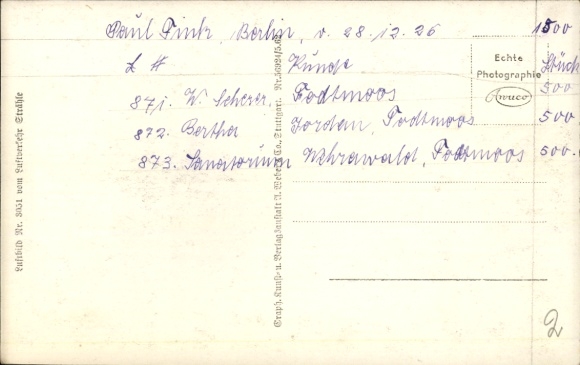 Paul Fink, Berlin, v. 28.12.26 1500
L # Kunde Stück
871. W. Scherer. Todtmoos 500
872. Bertha Jordan, Todtmoos 500
873. Sanatorium Wehrawald, Todtmoos 500.
Echte
Photographie
Amuco
Luftbild Nr. 3051 vom Luftverkehr Strähle
Graph. Kunst- u. Verlagsanstalt A. Weber & Co., Stuttgart.
2